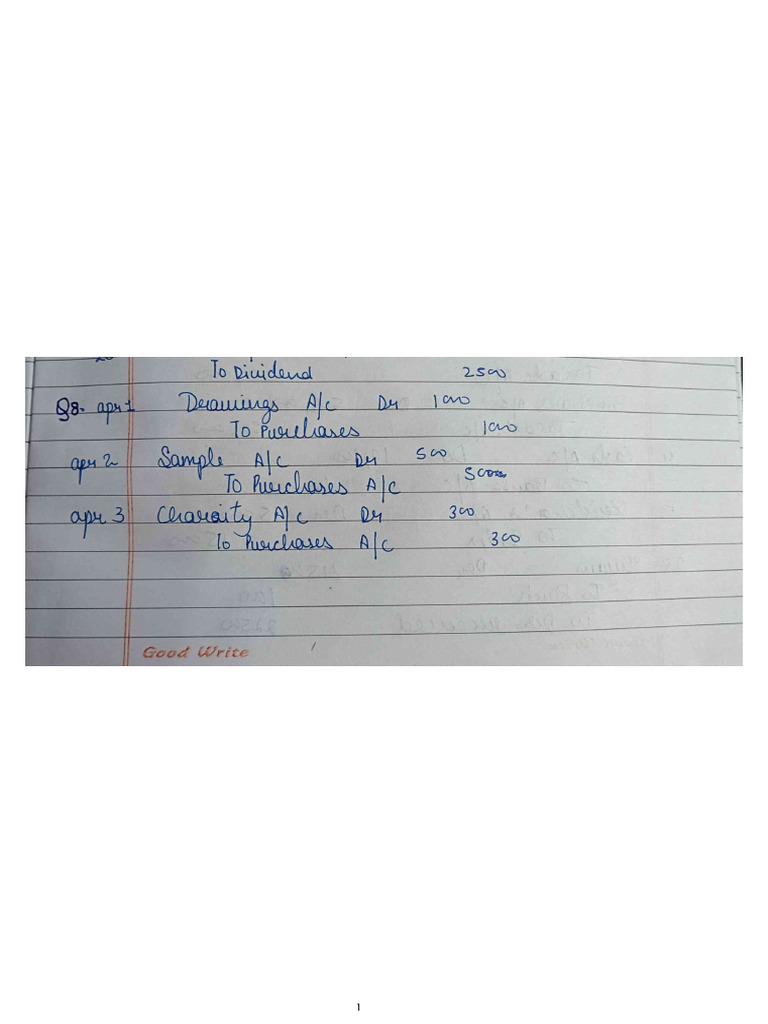 To Dividend 2500
Q8. apr 1 Drawings A/c Dr 1000
To Purchases 1000
apr 2 Sample A/c Dr 500
To Purchases A/c 500
apr 3 Charity A/c Dr 300
To Purchases A/c 300
Good Write
1